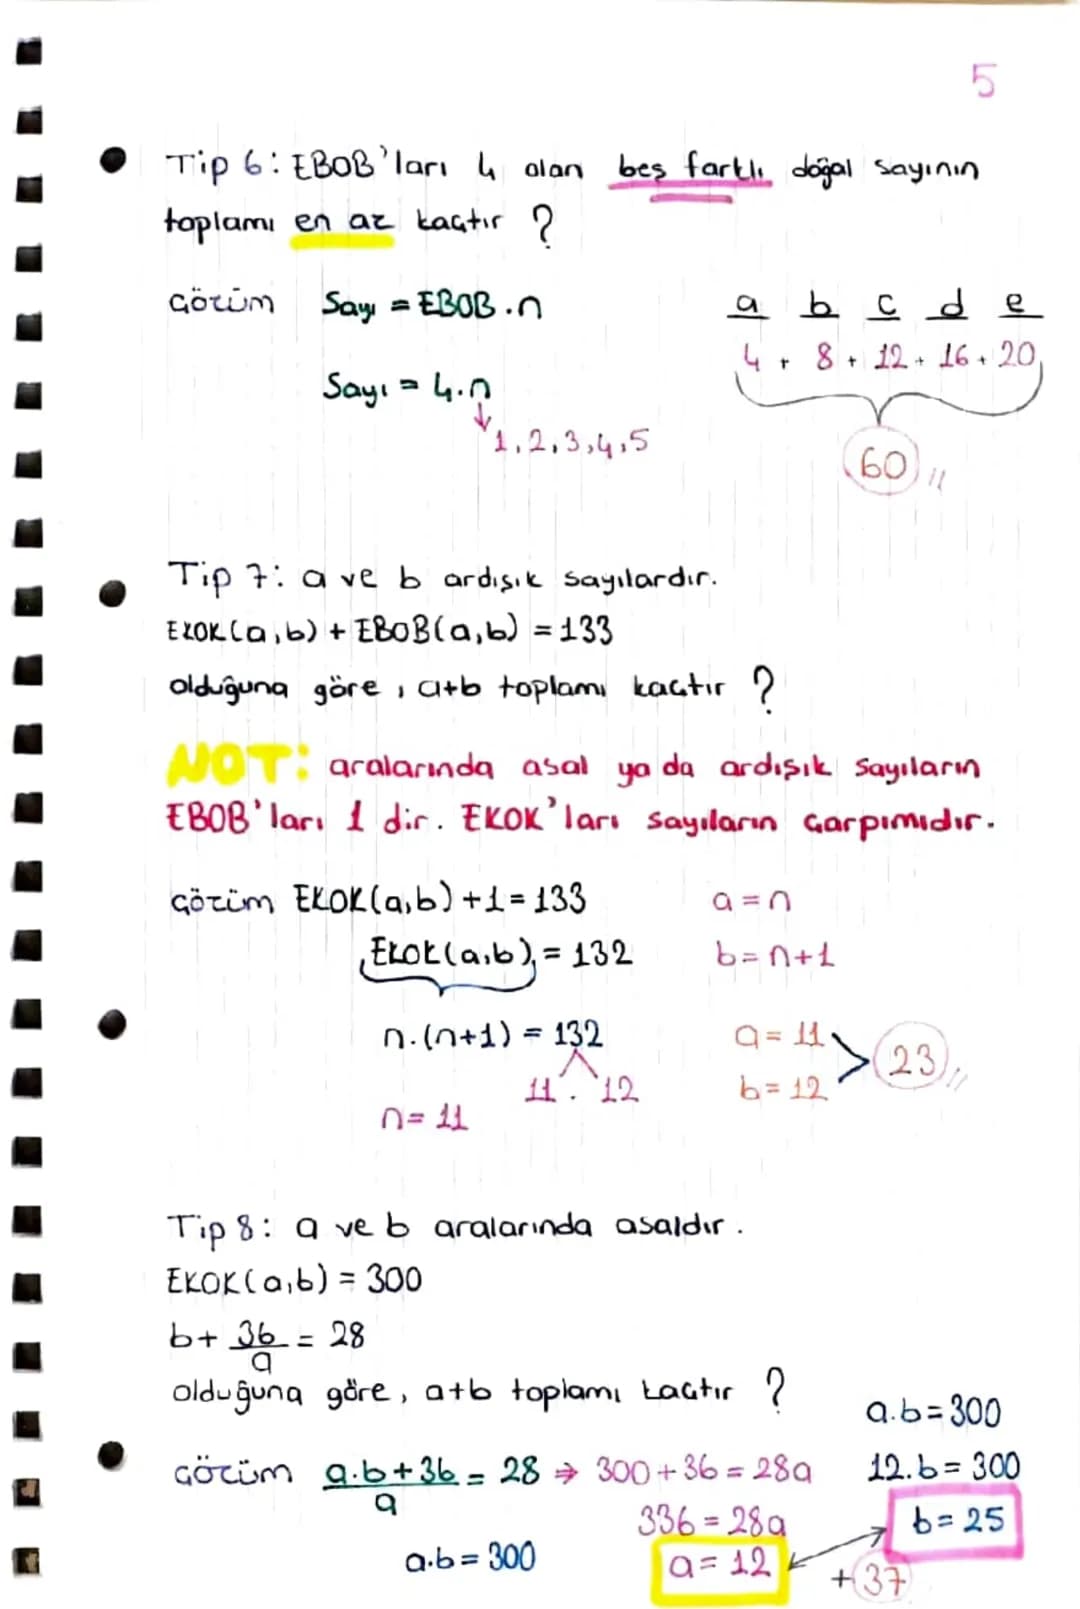 5
Tip 6: EBOB'ları 4 olan beş farklı doğal sayının
toplamı en az kaçtır ?
Çözüm Sayı = EBOB.n
a b c d e
4 + 8 + 12 + 16 + 20
Sayı = 4.n
1,2,3,4,5
60
Tip 7: a ve b ardışık sayılardır.
EKOK(a,b) + EBOB(a,b) = 133
olduğuna göre, a+b toplamı kaçtır ?
NOT: aralarında asal ya da ardışık sayıların
EBOB'ları 1 dir. EKOK'ları sayıların çarpımıdır.
Çözüm EKOK(a,b) +1 = 133 a = n
EKOK(a,b) = 132 b = n+1
n.(n+1) = 132 a = 11
11 . 12 b = 12 23
n = 11
Tip 8: a ve b aralarında asaldır.
EKOK(a,b) = 300
b + 36/a = 28
olduğuna göre, a+b toplamı kaçtır ?
a.b = 300
Çözüm a.b+36/a = 28 ⇒ 300+36 = 28a 12.b = 300
336 = 28a b = 25
a.b = 300 a = 12 + 37